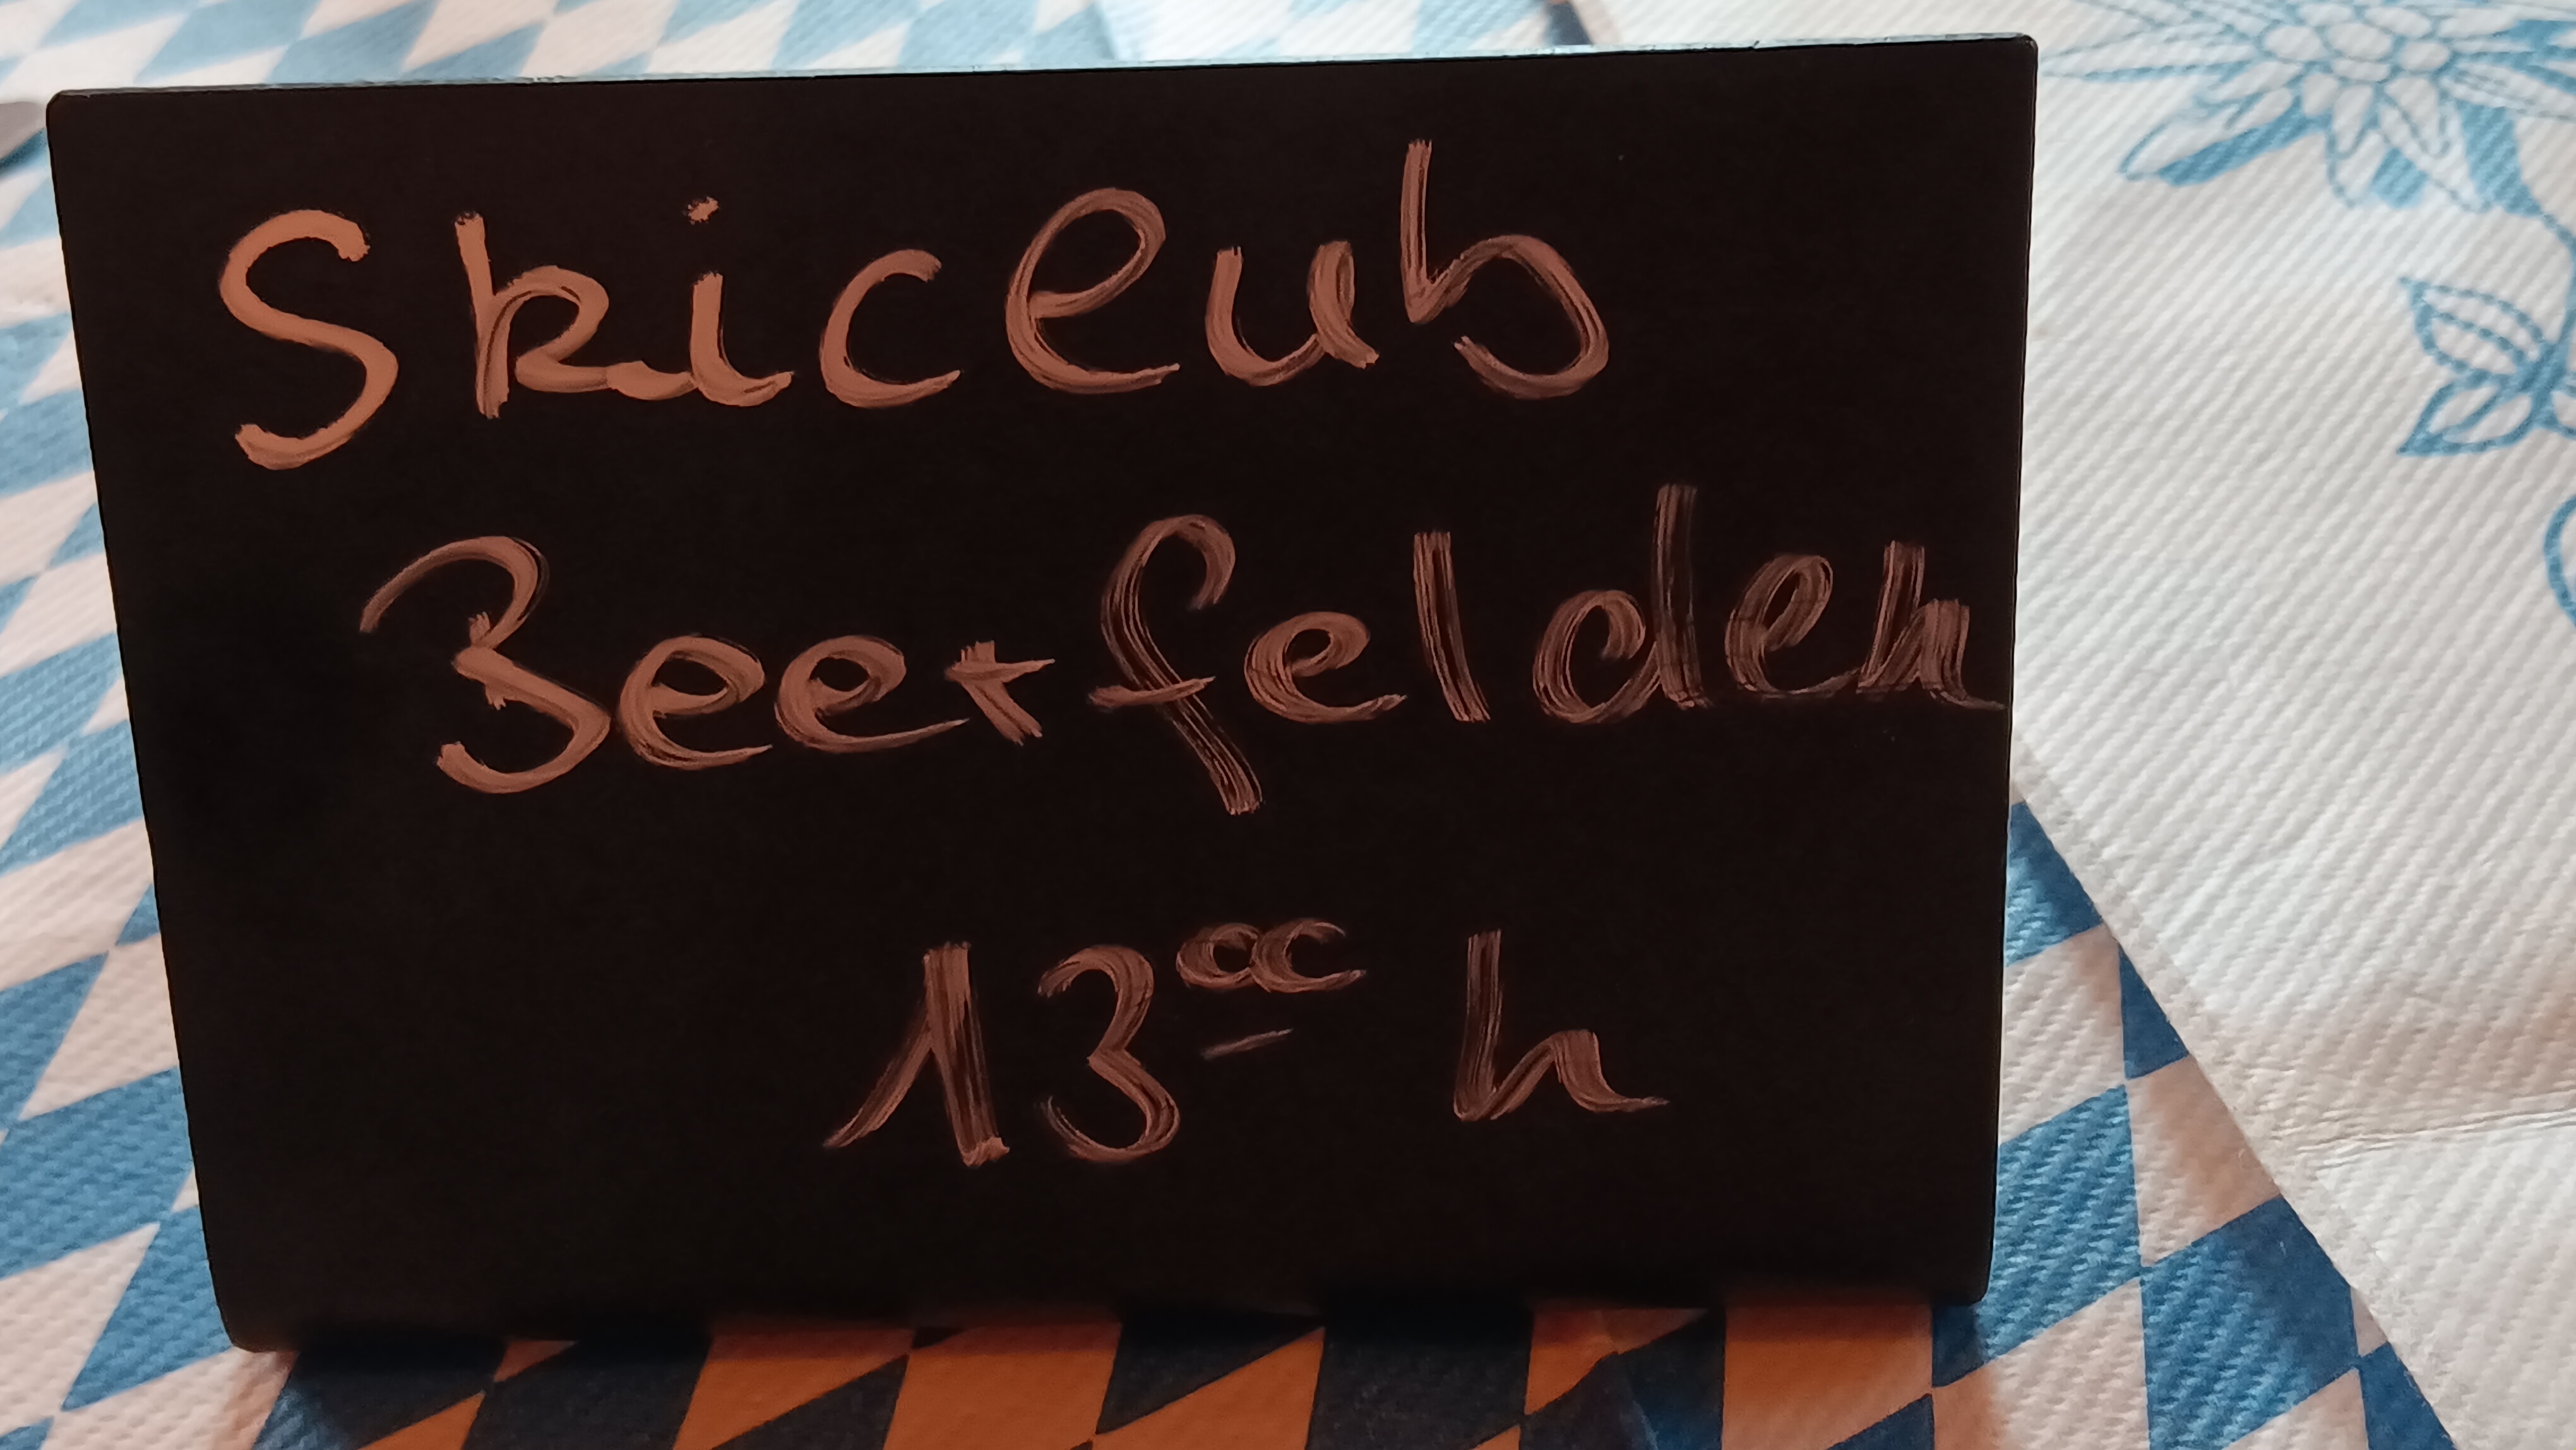 Skiclub
Beerfelden
13⁰⁰ h